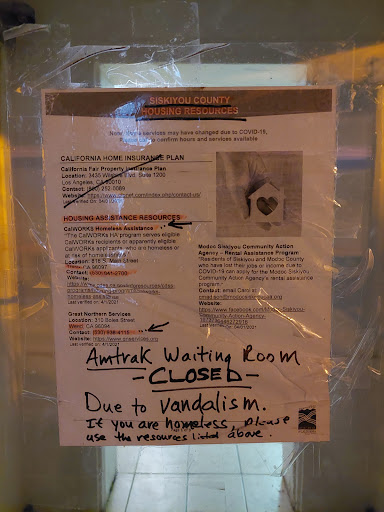 SISKIYOU COUNTY
HOUSING RESOURCES
Note: services may have changed due to COVID-19,
Please to confirm hours and services available
CALIFORNIA HOME INSURANCE PLAN
California Fair Property Insurance Plan
Location: 3435 Wilshire Blvd, Suite 1200
Los Angeles, CA 90010
Contact:
Website:
HOUSING ASSISTANCE RESOURCES
CalWORKS Homeless Assistance
"The CalWORKs HA program serves eligible
CalWORKs recipients or apparently eligible
CalWORKs applicants who are homeless or
at risk of homelessness."
Location: 818 S. Main Street
CA 96097
Contact: (530) 841-2700
Website:
Great Northern Services
Location: 310 Boles Street
Weed, CA 96094
Contact: (530) 938-4115
Website:
Last verified on: 4/1/2021
Modoc Siskiyou Community Action
Agency – Rental Assistance Program
"Residents of Siskiyou and Modoc County
who have lost their jobs or income due to
COVID-19 can apply for the Modoc Siskiyou
Community Action Agency's rental assistance
program."
Contact: email Carol at:
Website:
Last verified on: 04/01/2021
Amtrak Waiting Room
- CLOSED -
Due to vandalism.
If you are homeless, please
use the resources listed above.